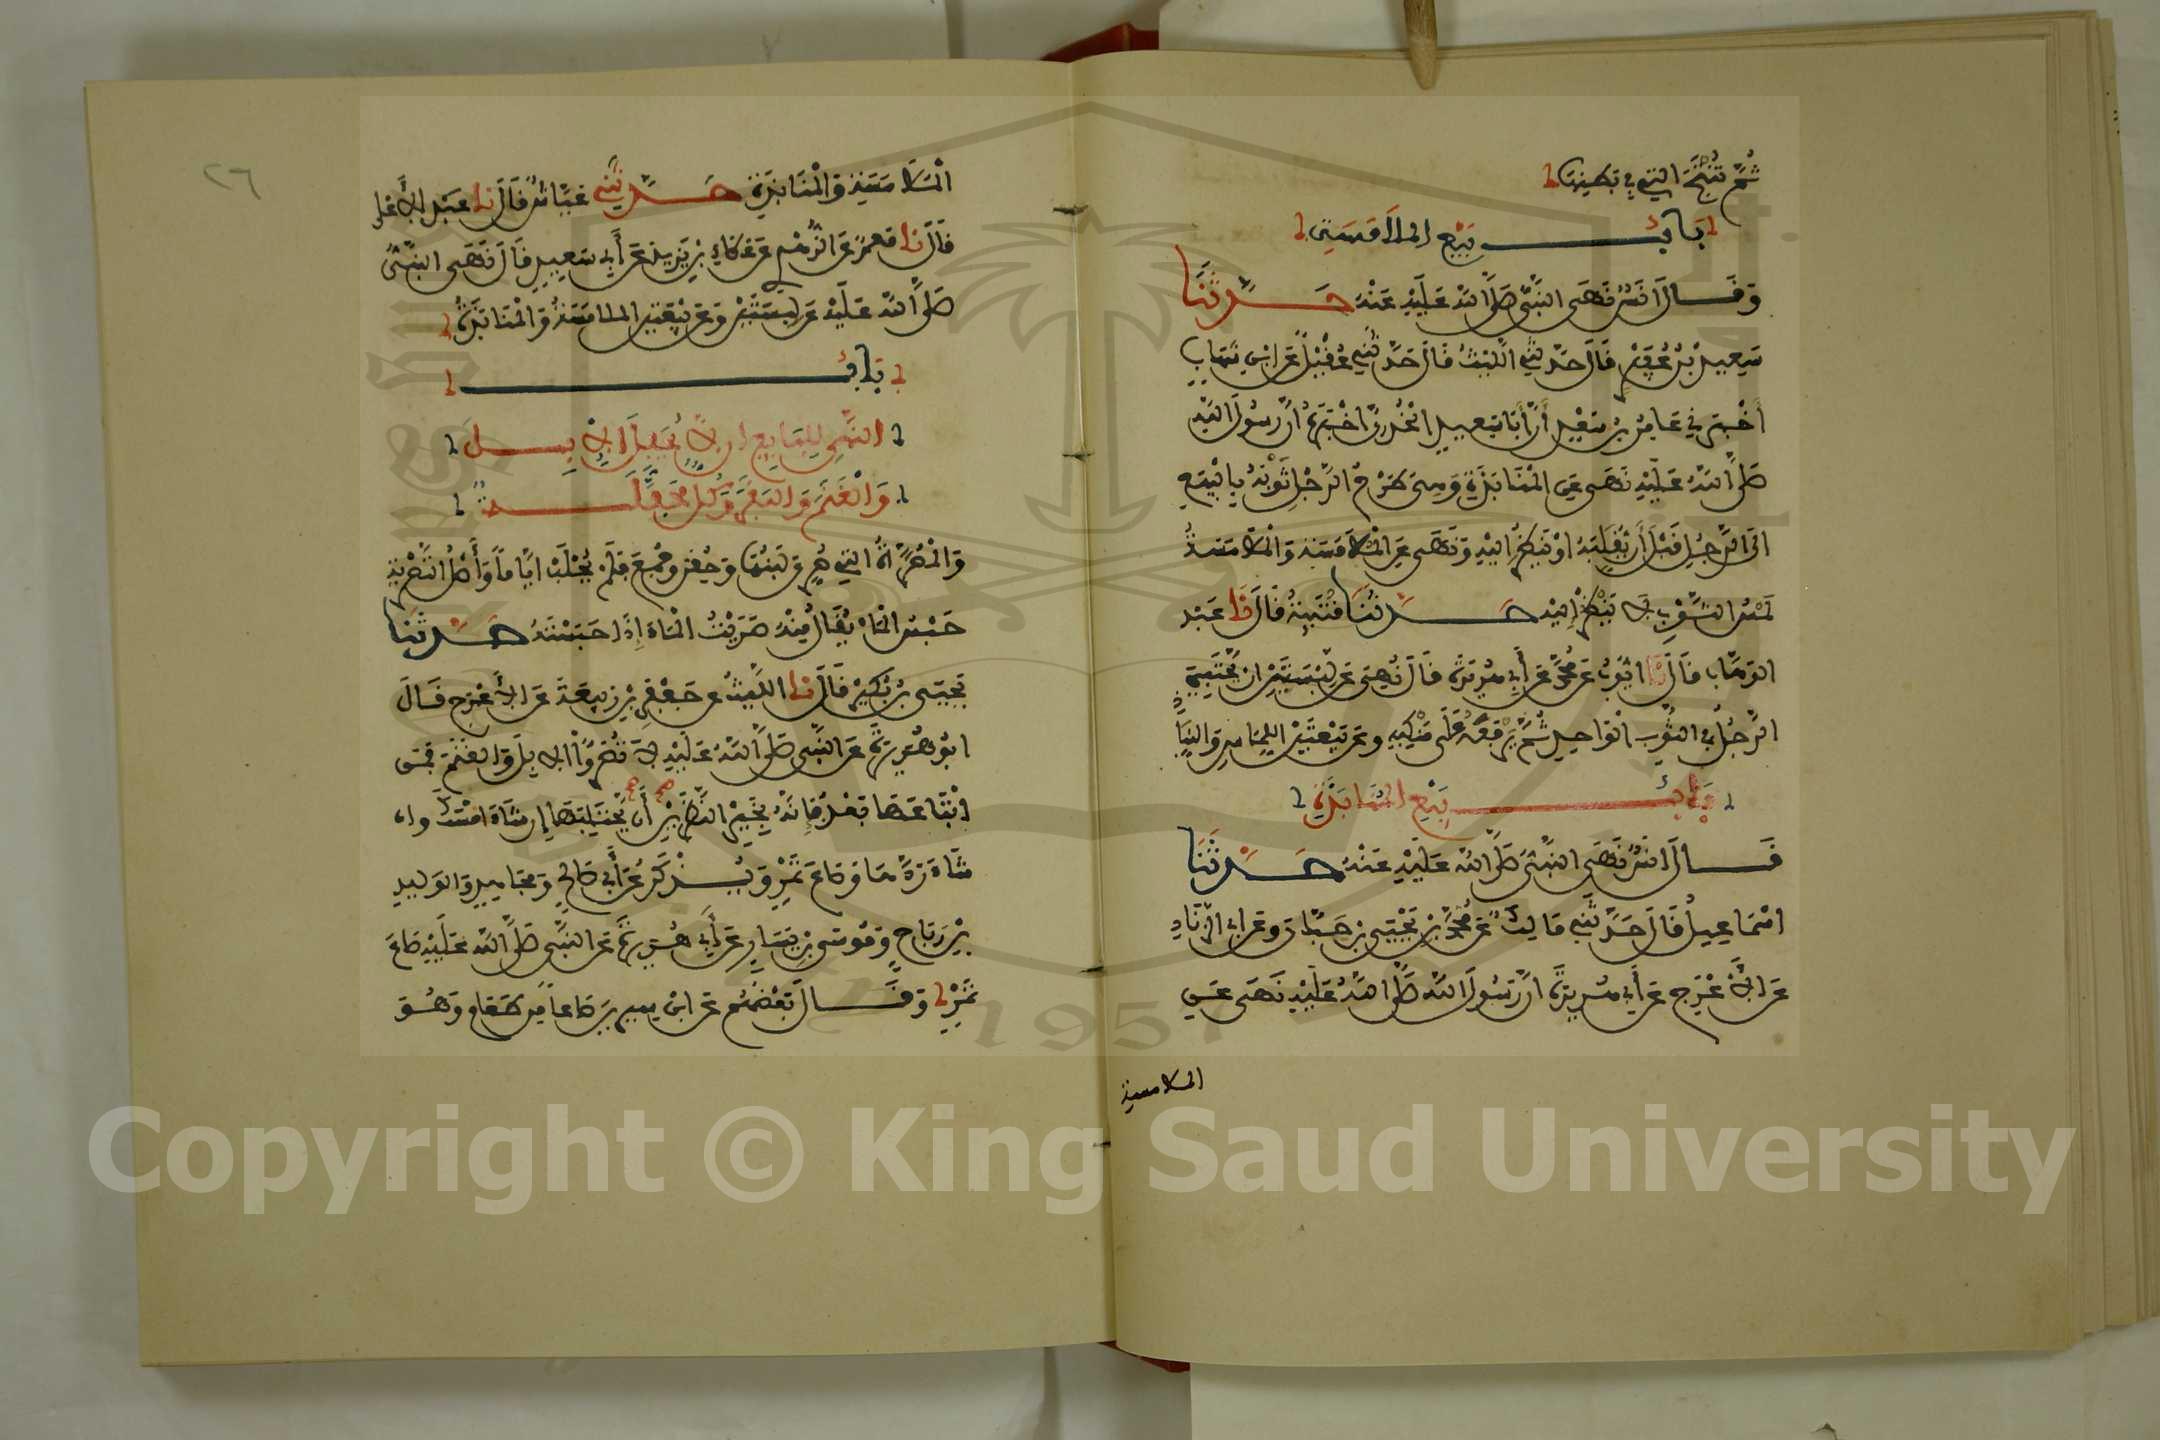 ثُمَّ تُنْتَجُ التي في بَطْنِهَا
بَابُ بَيْعِ الملَامَسَةِ
وَقَالَ أنَسٌ نَهَى النَّبِيُّ صَلَّى اللهُ عَلَيْهِ عَنْهُ حَدَّثَنَا
سَعِيدُ بْنُ عُفَيْرٍ قَالَ حَدَّثَنِي اللَّيْثُ قَالَ حَدَّثَنِي عُقَيْلٌ عَنِ ابْنِ شِهَابٍ
أَخْبَرَنِي عَامِرُ بْنُ سَعْدٍ أَنَّ أَبَا سَعِيدٍ الْخُدْرِيَّ أَخْبَرَهُ أنَّ رَسُولَ اللهِ
صَلَّى اللهُ عَلَيْهِ نَهَى عَنِ الْمُنَابَذَةِ وَهِيَ طَرْحُ الرَّجُلِ ثَوْبَهُ بِالْبَيْعِ
الَى الرَّجُلِ قَبْلَ أَنْ يُقَلِّبَهُ اوْ يَنْظُرَ الَيْهِ وَنَهَى عَنِ الْمُلَامَسَةِ وَالْمُلَامَسَةُ
لَمْسُ الثَّوْبِ لَا يَنْظُرُ إِلَيْهِ حَدَّثَنَا قُتَيْبَةُ قَالَ نَا عَبْدُ
الوَهَّابِ قَالَ نَا ايُّوبُ عَنْ مُحَمَّدٍ عَنْ أَبِي هُرَيْرَةَ قَالَ نُهِيَ عَنْ لِبْسَتَيْنِ انْ يَحْتَبِيَ
الرَّجُلُ فِي الثَّوْبِ الْوَاحِدِ ثُمَّ يَرْفَعَهُ عَلَى مَنْكِبِهِ وعَنْ بَيْعَتَيْنِ اللِّمَاسِ وَالنِّبَاذِ
بَابُ بَيْعِ الْمُنَابَذَةِ
قَالَ انَسٌ نَهَى النَّبِيُّ صَلَّى اللهُ عَلَيْهِ عَنْهُ حَدَّثَنَا
اسْمَاعِيلُ قَالَ حَدَّثَنِي مَالِكٌ عَنْ مُحَمَّدِ بْنِ يَحْيَى بْنِ حَبَّانَ وعَنْ ابِي الزِّنَادِ
عَنِ الْأَعْرَجِ عَنْ أَبِي هُرَيْرَةَ انَّ رَسُولَ اللهِ صَلَّى اللهُ عَلَيْهِ نَهَى عَنِ
الملامسة
٢٦
الْمُلَامَسَةِ وَالْمُنَابَذَةِ حَدَّثَنِي عَيَّاشٌ قَالَ نا عَبْدُ الأَعْلَى
قَالَ نا مَعْمَرٌ عَنِ الزُّهْرِيِّ عَنْ عَطَاءِ بْنِ يَزِيدَ عَنْ أَبِي سَعِيدٍ قَالَ نَهَى النَّبِيُّ
صَلَّى اللهُ عَلَيْهِ عَنْ لِبْسَتَيْنِ وَعَنْ بَيْعَتَيْنِ الملامَسَةِ وَالْمُنَابَذَةِ
بَابُ
النَّهْيِ لِلْبَايِعِ ان لَّا يُحَفِّلَ الإِبِلَ
وَالْغَنَمَ وَالبَقَرَ وَكُلَّ مُحَفَّلَةٍ
وَالْمُصَرَّاةُ التِي صُرِّيَ لَبَنُهَا وَحُقِنَ وجُمِعَ فَلَمْ يُحْلَبْ ايَّاماً وَأَصْلُ التَّصْرِيَةِ
حَبْسُ الْمَاءِ يُقَالُ مِنْهُ صَرَّيْتُ الْمَاءَ إِذَا حَبَسْتَهُ حَدَّثَنَا
يَحْيَى بْنُ بُكَيْرٍ قَالَ نا اللَّيْثُ عَنْ جَعْفَرِ بْنِ رَبِيعَةَ عَنِ الأَعْرَجِ قَالَ
ابُو هُرَيْرَةَ عَنِ النَّبِيِّ صَلَّى اللهُ عَلَيْهِ لَا تُصَرُّوا الإِبِلَ وَالغَنَمَ فَمَنِ
ابْتَاعَهَا بَعْدُ فَإِنَّهُ بِخَيْرِ النَّظَرَيْنِ أَنْ يَحْتَلِبَهَا إن شَاءَ امْسَكَ وان
شَاءَ رَدَّهَا وَصَاعَ تَمْرٍ وَيُذْكَرُ عَنْ أَبِي صَالِحٍ وَمُجَاهِدٍ وَالوَلِيدِ
بْنِ رَبَاحٍ وَمُوسَى بْنِ يَسَارٍ عَنْ أَبِي هُرَيْرَةَ عَنِ النَّبِيِّ صَلَّى اللهُ عَلَيْهِ صَاعَ
تَمْرٍ وَقَالَ بَعْضُهُمْ عَنِ ابْنِ سِيرِينَ صَاعاً مِّن طَعَامٍ وَهُوَ
1957
Copyright © King Saud University